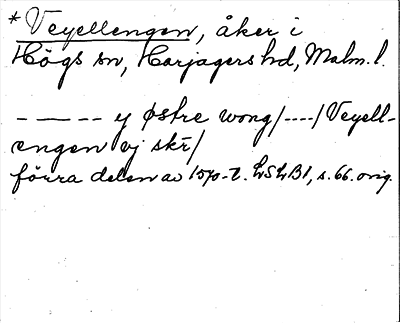 * Veyellengen, åker i
Högs sn, Harjagers hd, Malm. l.
- - - - - y østre wong/----/Veyell-
engen vj skr/
förra delen av 1570-t. LSLB1, s. 66. orig.